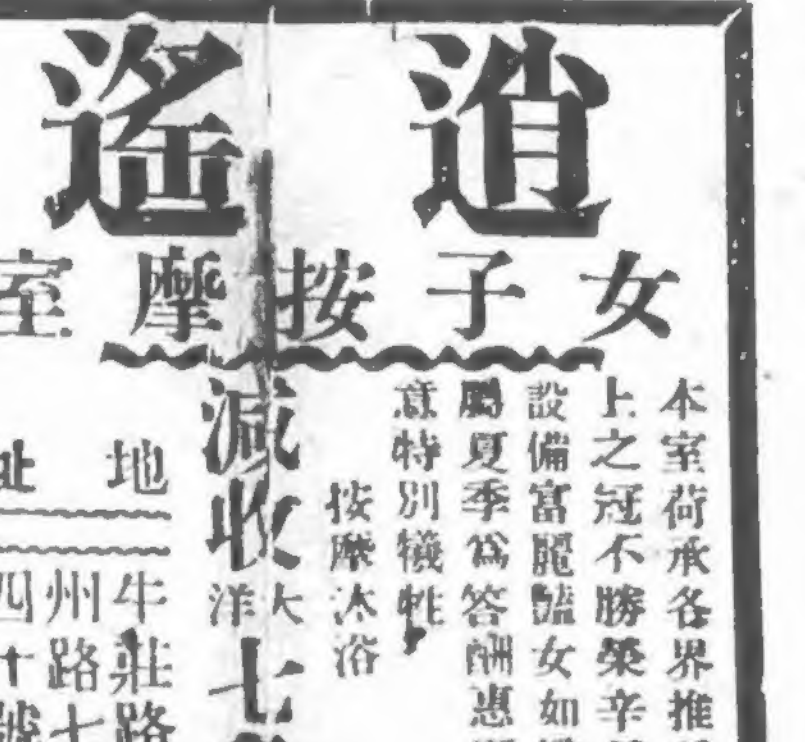 逍遙
女子按摩室
本室荷承各界推
上之冠不勝榮幸
設備富麗豔女如
屬夏季為答酬惠
意特別犧牲
按摩沐浴
減收
大洋
七
地址
牛莊路
州路七
四十號